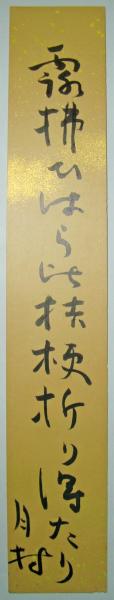 露拂ひはらひ桔梗折り得たり
月村